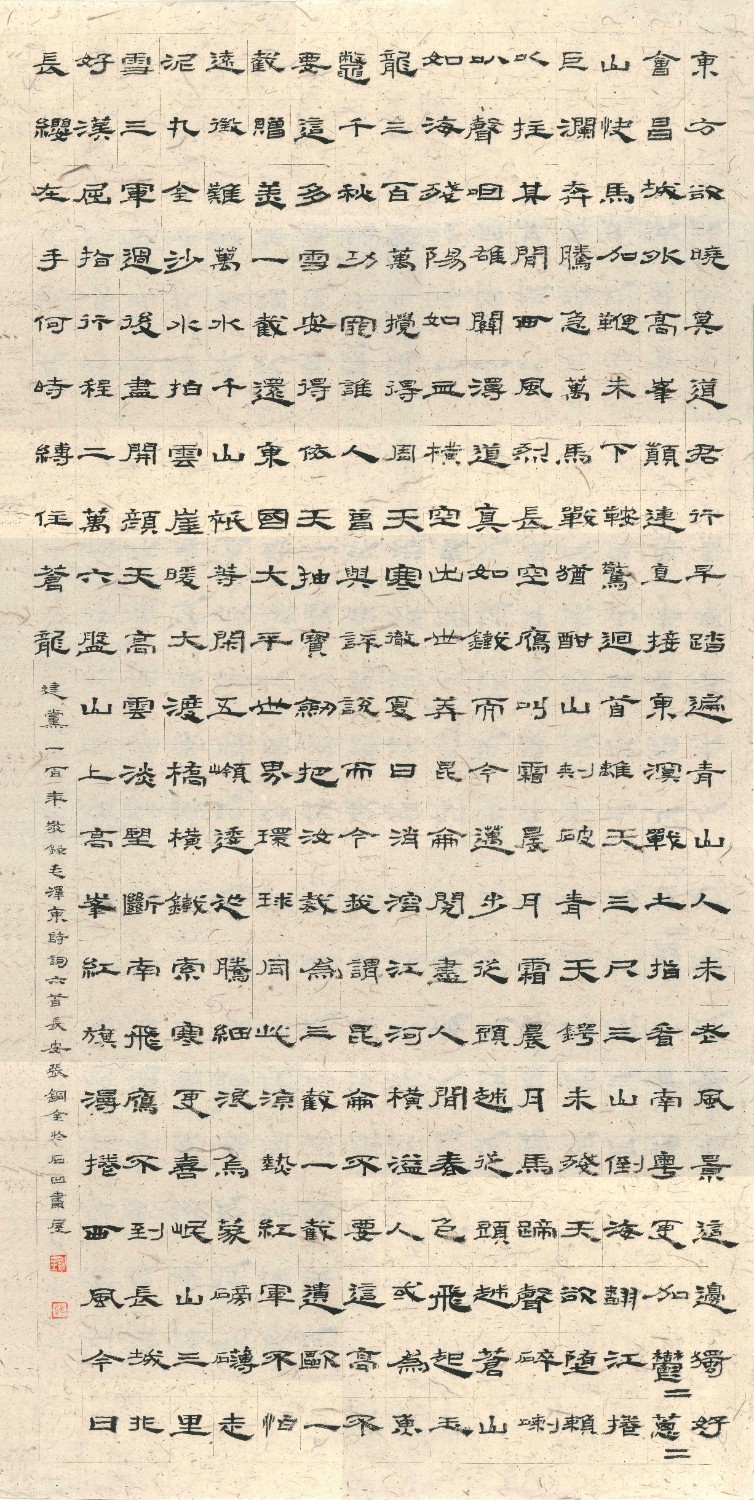 東方欲曉莫道君行早踏遍青山人未老風景這邊獨好
會昌城外高峯顛連直接東溟戰士指看南粵更加鬱二蔥二
山快馬加鞭未下鞍驚迴首離天三尺三山倒海翻江捲
巨瀾奔騰急萬馬戰猶酣山刺破青天鍔未殘天欲墮賴
以拄其間西風烈長空鴈叫霜晨月霜晨月馬蹄聲碎喇
叭聲咽雄關漫道真如鐵而今邁步從頭越從頭越蒼山
如海殘陽如血橫空出世莽昆侖閱盡人間春色飛起玉
龍三百萬攪得周天寒徹夏日消溶江河橫溢人或為魚
鱉千秋功罪誰人曾與評說而今我謂昆侖不要這高不
要這多雪安得依天抽寶劍把汝裁為三截一截遺歐一
截贈美一截還東國大平世界環球同此涼熱紅軍不怕
遠徵難萬水千山祇等閑五嶺逶迤騰細浪烏蒙磅礴走
泥丸全沙水拍雲崖暖大渡橋橫鐵索寒更喜岷山三里
雪三軍過後盡開顏天高雲淡望斷南飛鴈不到長城北
好漢屈指行程二萬六盤山上高峯紅旗漫捲西風今日
長纓在手何時縛住蒼龍
建黨一百年敬錄毛澤東詩詞六首長安張銅全於石凹書屋